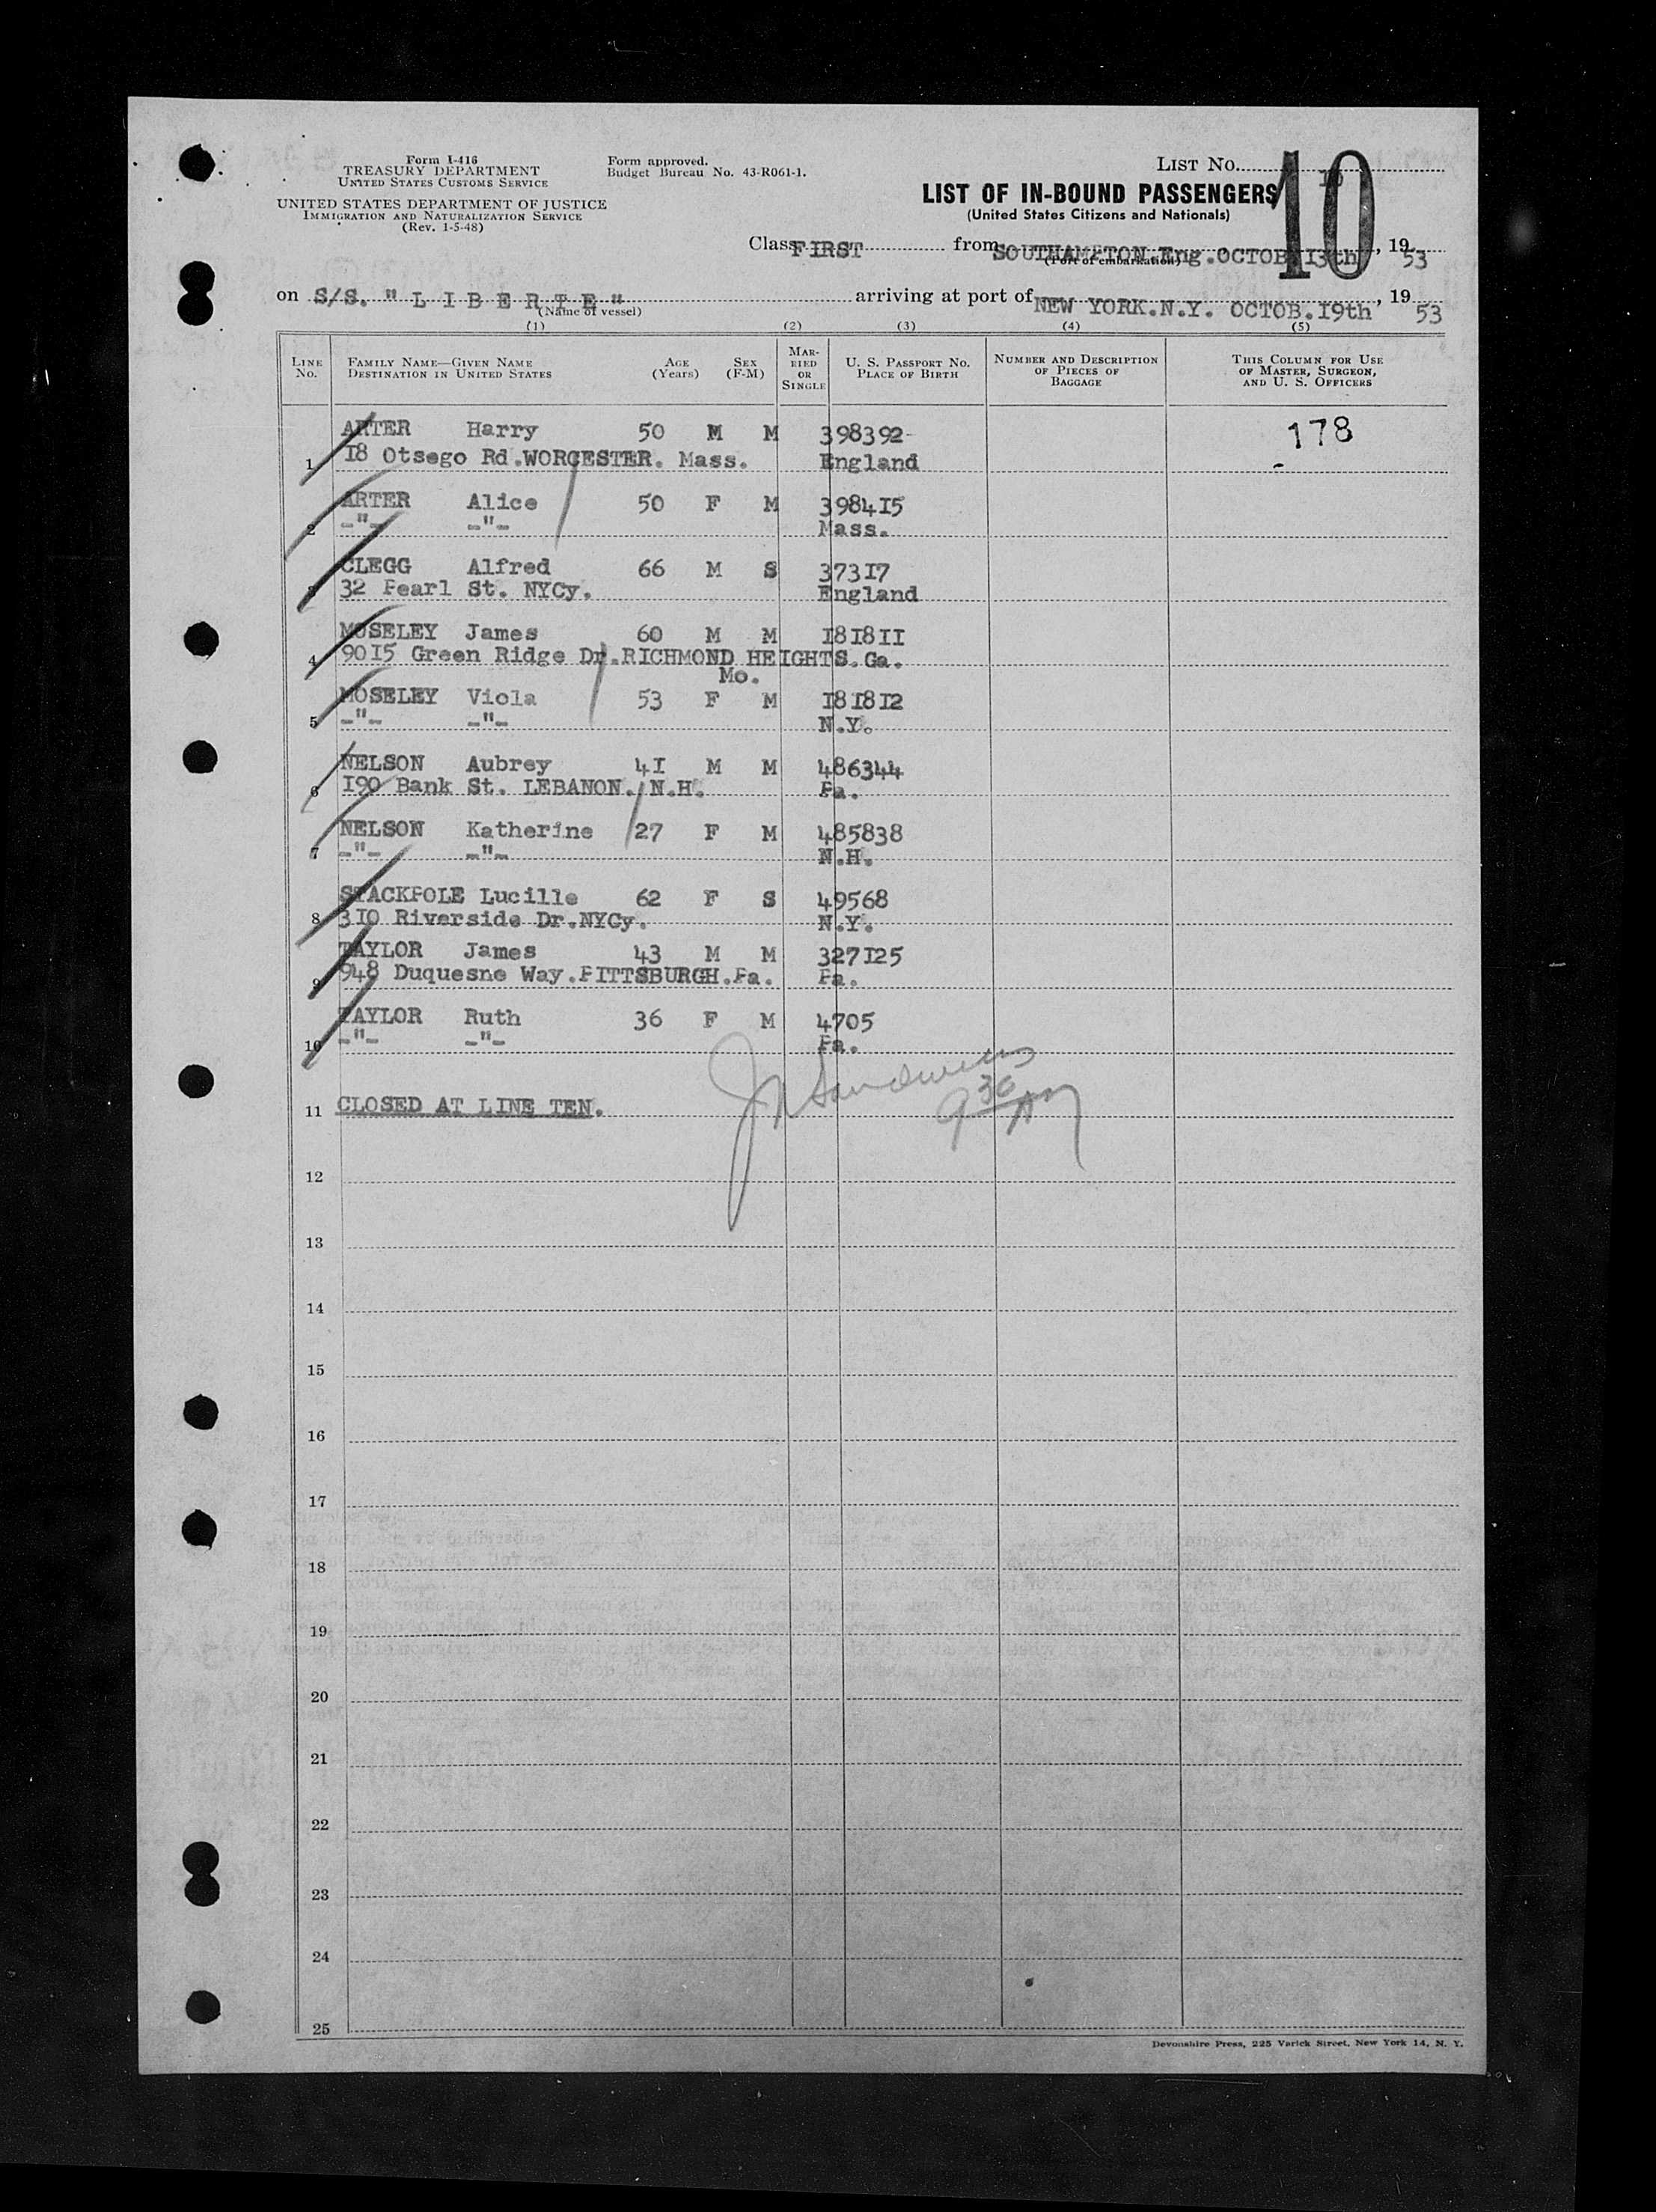 Form I-416
TREASURY DEPARTMENT
UNITED STATES CUSTOMS SERVICE
UNITED STATES DEPARTMENT OF JUSTICE
IMMIGRATION AND NATURALIZATION SERVICE
(Rev. 1-5-48)
Form approved.
Budget Bureau No. 43-R061-1.
LIST NO. 10
10
LIST OF IN-BOUND PASSENGERS
(United States Citizens and Nationals)
Class FIRST from SOUTHAMPTON.Eng.OCTOB.I3th, 19 53
(Port of embarkation)
on S/S. " L I B E R T E " arriving at port of NEW YORK.N.Y. OCTOB.I9th, 19 53
(Name of vessel)
(1) (2) (3) (4) (5)
LINE No. FAMILY NAME—GIVEN NAME DESTINATION IN UNITED STATES AGE (Years) SEX (F-M) MARRIED OR SINGLE U. S. PASSPORT NO. PLACE OF BIRTH NUMBER AND DESCRIPTION OF PIECES OF BAGGAGE THIS COLUMN FOR USE OF MASTER, SURGEON, AND U. S. OFFICERS
ARTER Harry 50 M M 398392- 178
1 I8 Otsego Rd.WORCESTER. Mass. England
ARTER Alice 50 F M 3984I5
2 -"- -"- Mass.
CLEGG Alfred 66 M S 373I7
3 32 Pearl St. NYCy. England
MOSELEY James 60 M M I8I8II
4 90I5 Green Ridge Dr.RICHMOND HEIGHTS. Ga.
Mo.
MOSELEY Viola 53 F M I8I8I2
5 -"- -"- N.Y.
NELSON Aubrey 4I M M 486344
6 I90 Bank St. LEBANON. N.H. Pa.
NELSON Katherine 27 F M 485838
7 -"- -"- N.H.
STACKPOLE Lucille 62 F S 49568
8 3I0 Riverside Dr.NYCy. N.Y.
TAYLOR James 43 M M 327I25
9 948 Duquesne Way.PITTSBURGH.Pa. Pa.
TAYLOR Ruth 36 F M 4705
10 -"- -"- Pa.
9 30 AM
11 CLOSED AT LINE TEN.
12
13
14
15
16
17
18
19
20
21
22
23
24
25
Devonshire Press, 225 Varick Street, New York 14, N. Y.